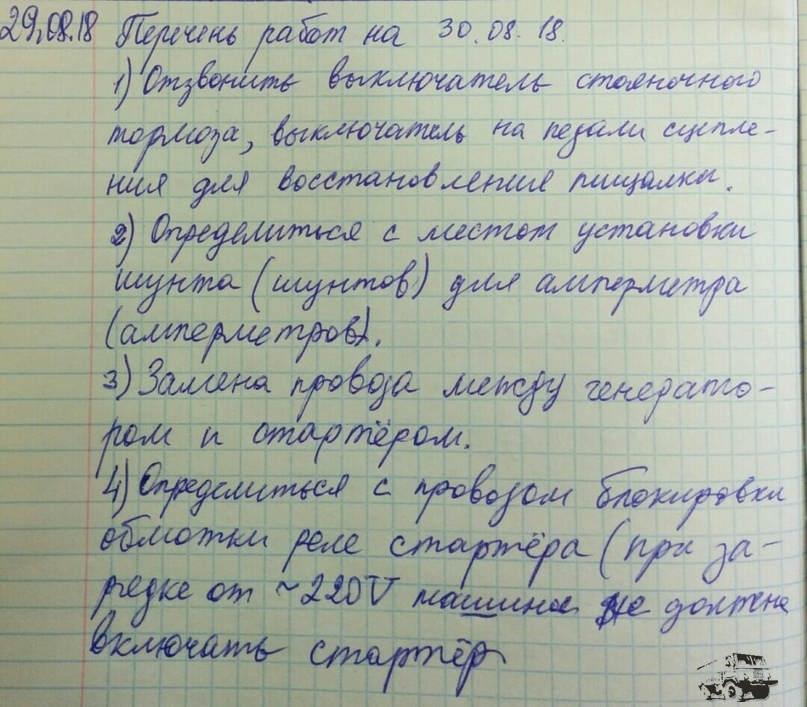 29.08.18 Перечень работ на 30.08.18.
1) Отзвонить выключатель стояночного
тормоза, выключатель на педали сцепле-
ния для восстановления пищалки.
2) Определиться с местом установки
шунта (шунтов) для амперметра
(амперметров).
3) Замена провода между генерато-
ром и стартёром.
4) Определиться с проводом блокировки
обмотки реле стартёра (при за-
рядке от ~220V машина не должна
включать стартёр